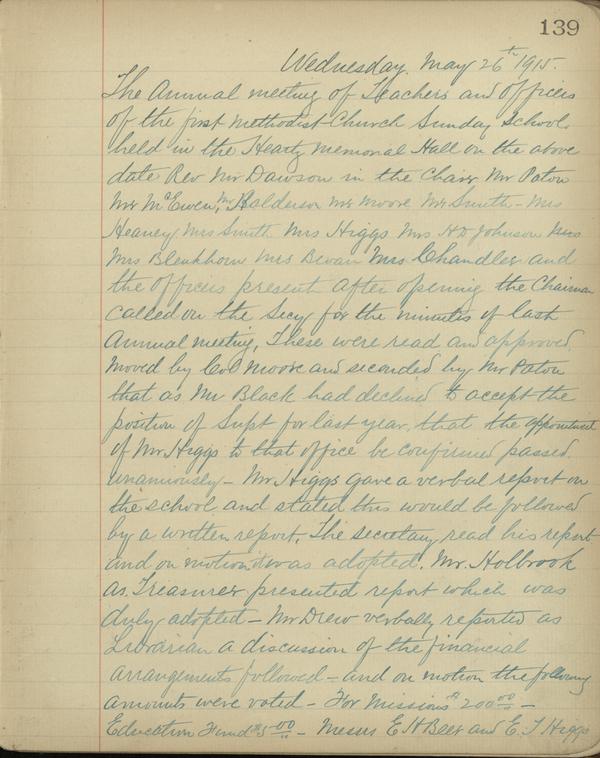 139
Wednesday. May 26th 1915.
The Annual meeting of Teachers and Officers
of the first Methodist Church Sunday School
held in the Heartz Memorial Hall on the above
date Rev Mr Dawson in the Chair Mr Paton
Mr McEwen, Mr Balderson Mr Moore Mr Smith - Mrs
Heaney Mrs Smith Mrs Higgs Mrs H D Johnson
Mrs Blenkhorn Mrs Bevan Mrs Chandler and
the officers present after opening the Chairman
called on the Secy for the minutes of last
Annual meeting, These were read and approved
Moved by Col Moore and seconded by Mr Paton
that as Mr Black had declined to accept the
position of Supt for last year, that the appointment
of Mr Higgs to that office be confirmed passed
unanimously - Mr Higgs gave a verbal report on
the school and stated this would be followed
by a written report. The secretary read his report
and on motion it was adopted. Mr. Holbrook
as Treasurer presented report which was
duly adopted - Mr Drew verbally reported as
Librarian a discussion of the financial
arrangements followed - and on motion the following
amounts were voted - For Missions $200 00 -
Education Fund $5 00 - Messrs E H Beer and E. T Higgs